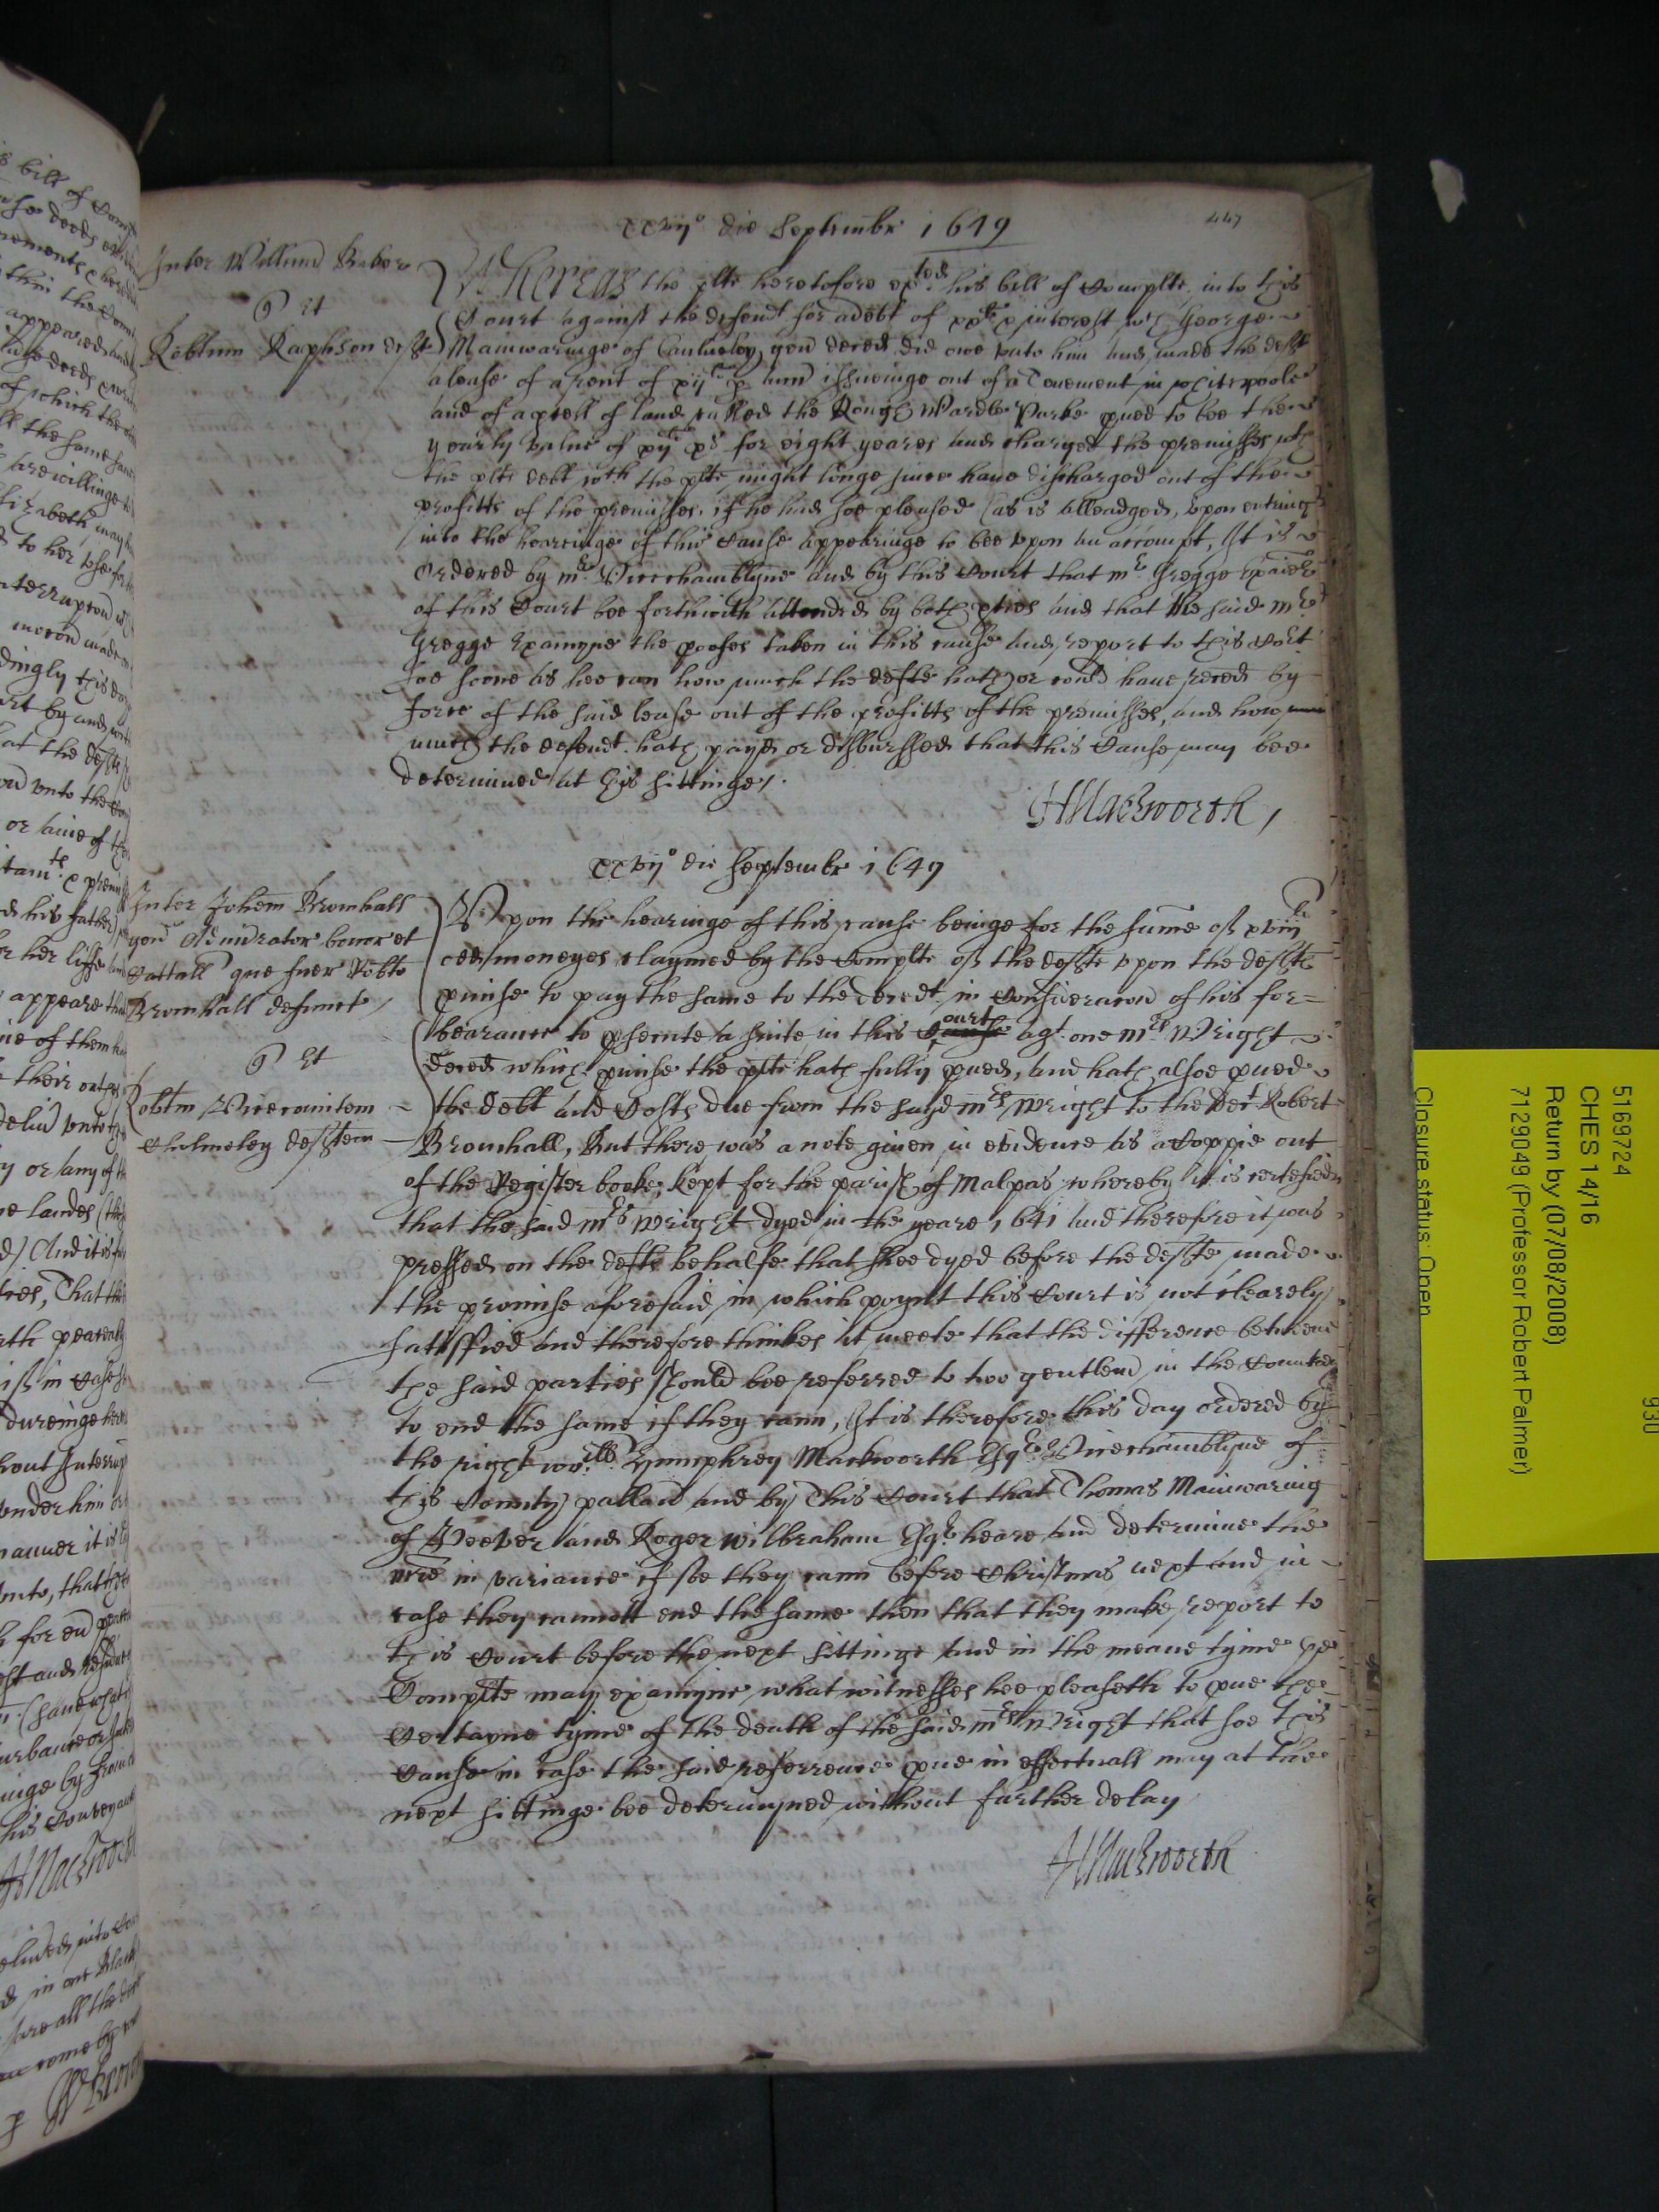 xxvijo die Septembr 1649
447
Inter Willimu Baber
q et
Robtum Raphson deft
Whereas the plte heretofore exted his bill of Complte into this
Court against the defendt for a debt of xxli & interest wch George
Mainwaringe of gen deced did owe vnto him and made the defte
a lease of a rent of xijli p Ann issueinge out of a Tenement in
and of a pcell of land called the Rough Wardle Parke pued to bee the
yearly value of xijli xs for eight yeares and charged the premisses wth
the plts debt wch the plte might longe since haue discharged out of the
profitts of the premisses if he had soe pleased (as is alleadged, vpon entringe
into the hearinge of this Cause appearinge to bee vpon an accompt, It is
Ordered by mr Vicechamblyne and by this Court that mr Gregge Exaier
of this Court bee forthwith attended by both pties and that the said mr
Gregge Examyne the pooses taken in this cause and report to this Cort
soe soone as hee can how much the defte hath or could haue reced by
force of the said lease out of the profitts of the premisses, and how
much the defendt hath payd or disbursed that this Cause may bee
determined at this sittinge,
HMackworth,
xxvijo die Septembr 1649
Inter Johem Bromhall
gen Administrator bonor et
Cattall que fuer Robti
Bromhall defunct
q et
Robtm Vicecomitem
Cholmeley defftem
Vpon the hearinge of this cause beinge for the sume of xviijli
odd moneyes claymed by the Complte of the defte vpon the defts
pmise to pay the same to the decedt in Consideracon of his for=
bearance to psecute a suite in this Court agt one mrs Wright
deced which pmise the plte hath fully pued, and hath alsoe pued
the debt and Costs due from the sayd mrs Wright to the Robert
Bromhall, But there was a note given in evidence as a Coppie out
of the Register booke kept for the parish of Malpas whereby it is certefied
that the said mrs Wright dyed in the yeare 1641 and therefore it was
pressed on the defts behalfe that shee dyed before the defte made
the promise aforesaid, in which poynt this Court is not clearely
sattisfied and therefore thinkes it meete that the difference betweene
the said parties should bee referred to two gentlen in the Countrey
to end the same if they cann, It is therefore this day ordered by
the right worll Humphrey Mackworth Esqr Vicechamblyne of
this County pallan and by This Court that Thomas Mainwaring
of Weever and Roger Wilbraham Esqr heare and determine the
mre in variance if soe they cann before Christmas next and in
case they cannott end the same then that they make report to
this Court before the next sittinge and in the meane tyme ye
Complte may examyne what witnesses hee pleaseth to pue the
Certayne tyme of the death of the said mrs Wright that soe this
Cause in case the said referrence pue in effectuall may at the
next sittinge bee determyned without further delay
HMackworth
5169724
CHES 14/16
Return by (07/08/2008)
7129049 (Professor Robert Palmer)
Closure status: Open
930